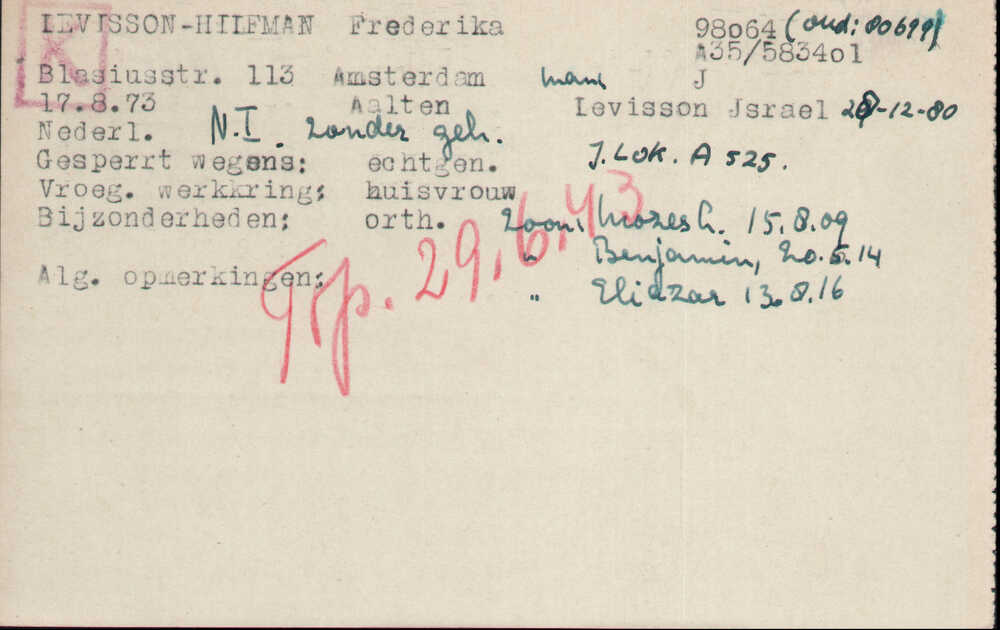 LEVISSON-HILFMAN Frederika 98o64 (oud: 80699)
K
A35/5834o1
Blasiusstr. 113 Amsterdam man J
17.8.73 Aalten Levisson Jsrael 28-12-80
Nederl. N.I. zonder geh.
Gesperrt wegens: echtgen. J. Lok. A 525.
Vroeg. werkkring; huisvrouw
Bijzonderheden; orth. zoon: Mozes h. 15.8.09
" Benjamin, 20.5.14
Alg. opmerkingen; " Eliazar 13.8.16
Trp. 29.6.43